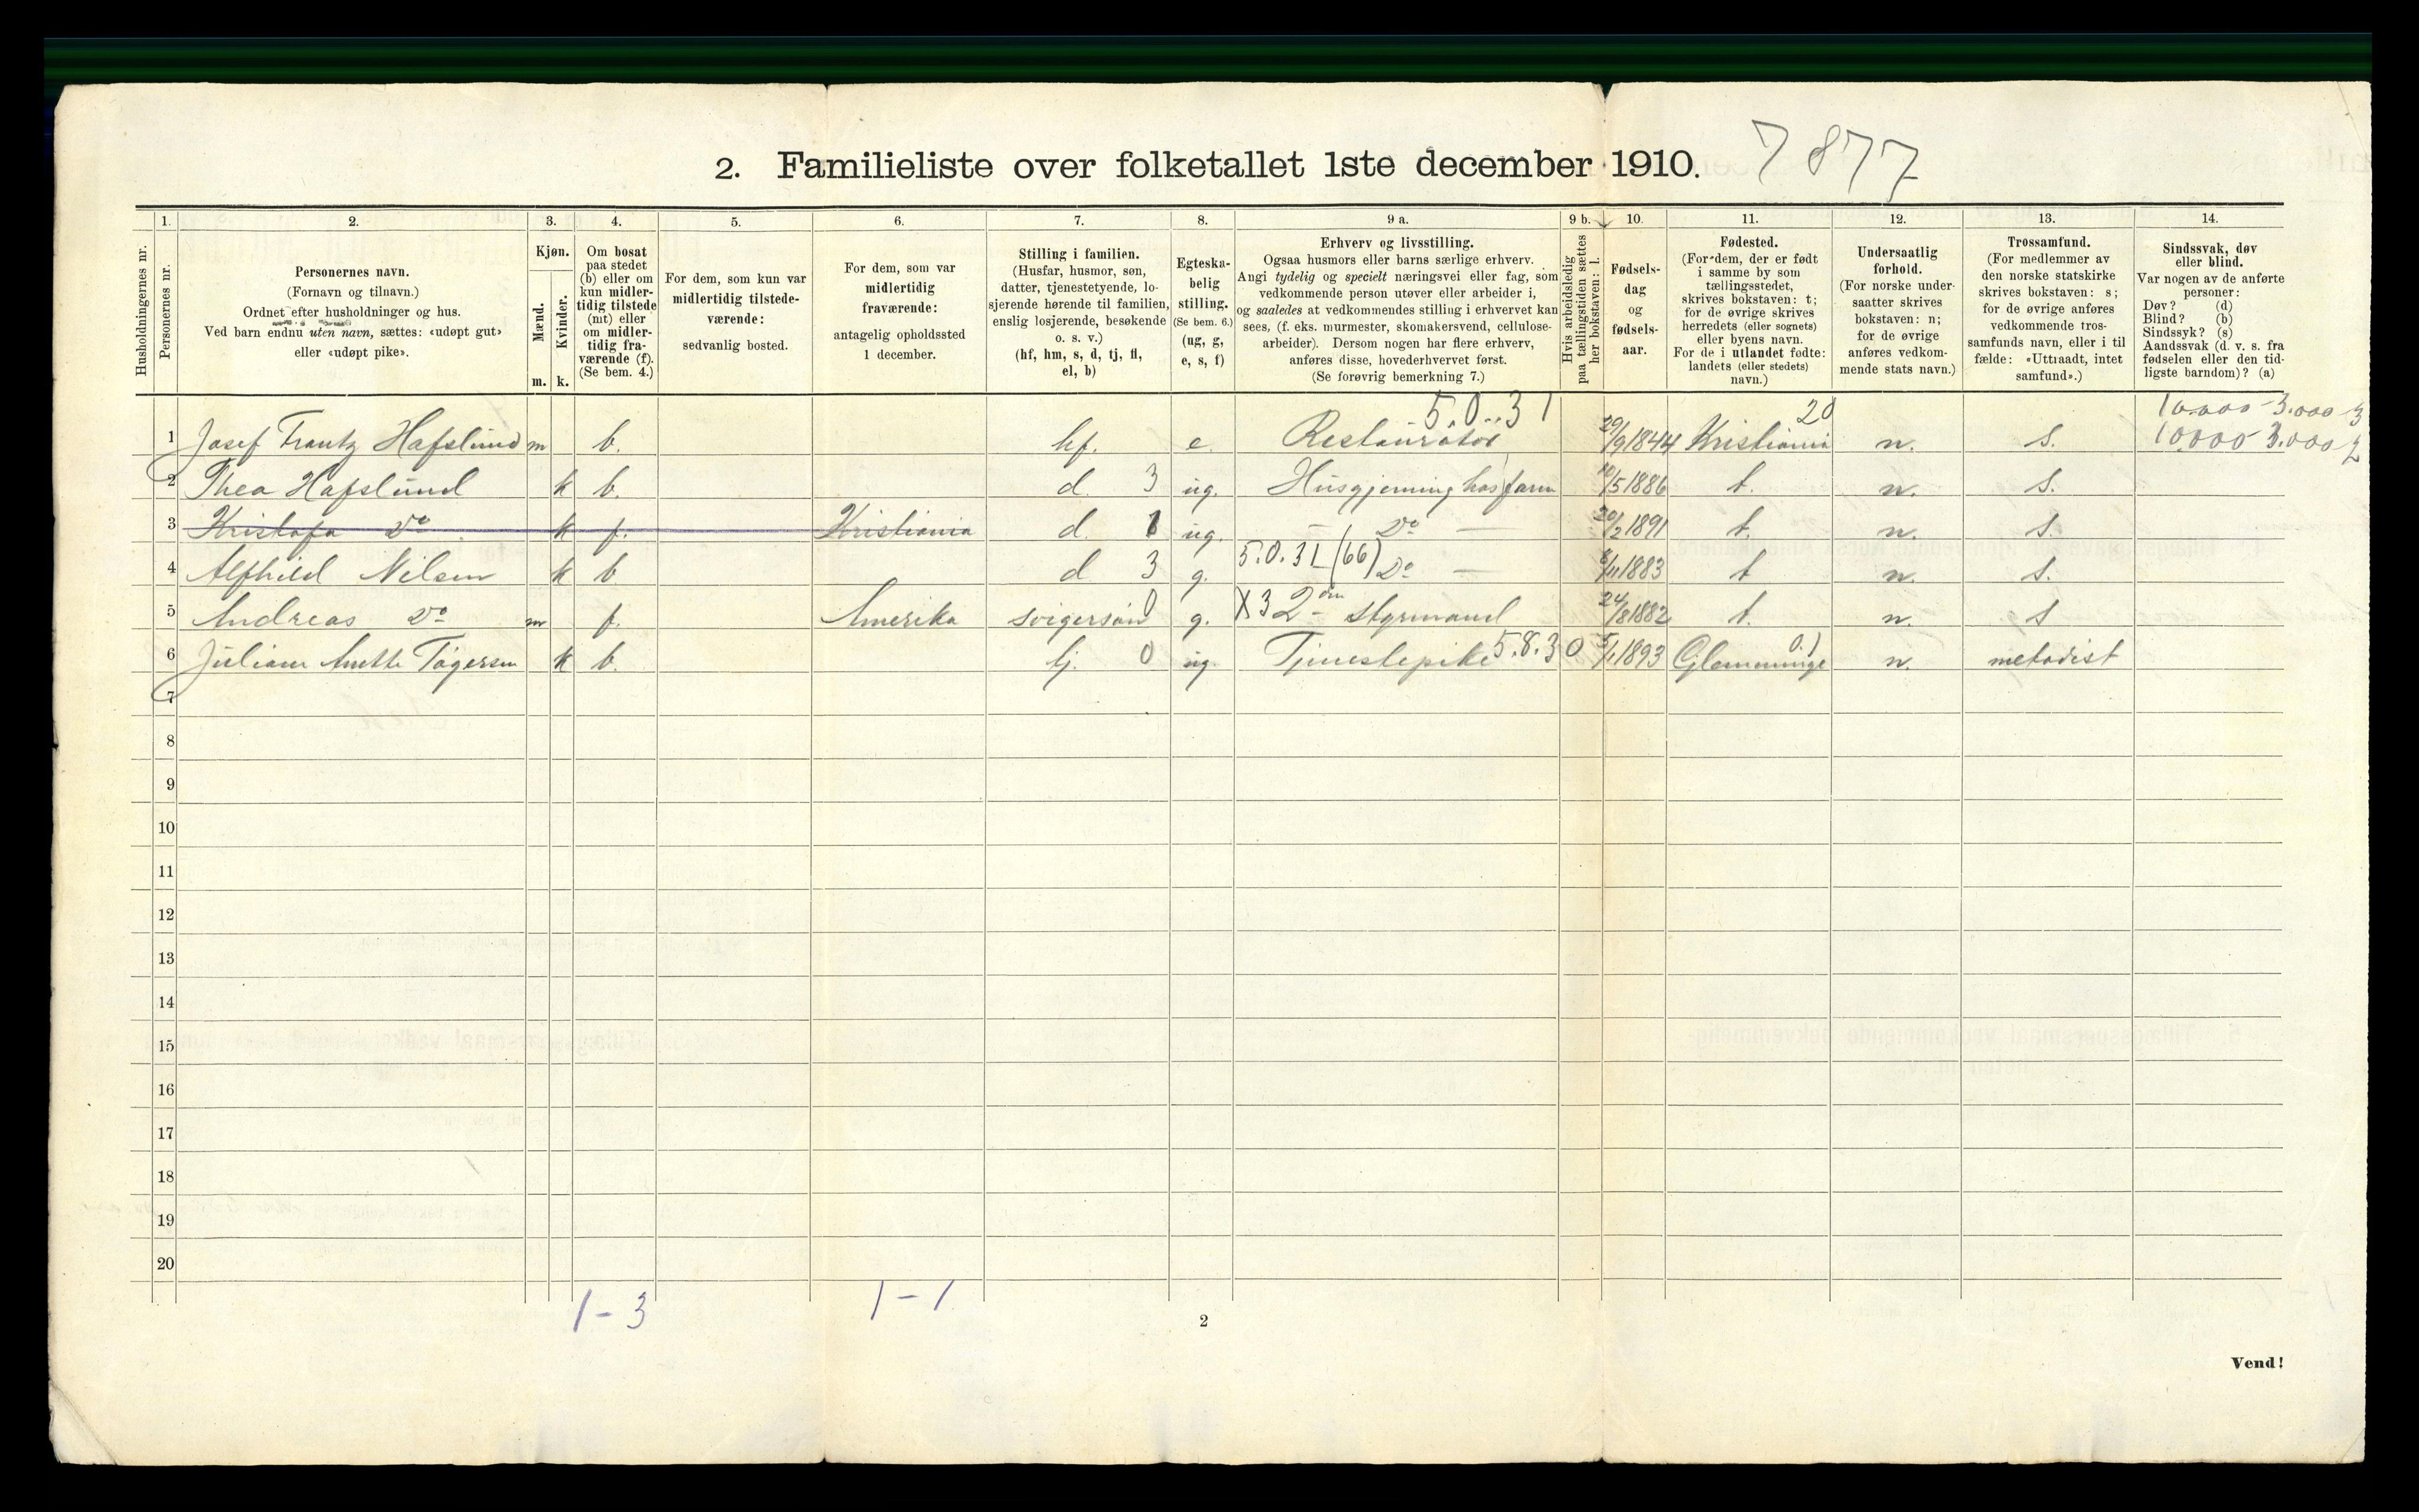 2. Familieliste over folketallet 1ste december 1910. 7877
1. 2. 3. 4. 5. 6. 7. 8. 9 a. 9 b. 10. 11. 12. 13. 14.
Husholdningernes nr.
Personernes nr.
Personernes navn.
(Fornavn og tilnavn.)
Ordnet efter husholdninger og hus.
Ved barn endnu uten navn, sættes: «udøpt gut»
eller «udøpt pike».
Kjøn.
Mænd.
m.
Kvinder.
k.
Om bosat
paa stedet
(b) eller om
kun midler-
tidig tilstede
(mt) eller
om midler-
tidig fra-
værende (f).
(Se bem. 4.)
For dem, som kun var
midlertidig tilstede-
værende:
sedvanlig bosted.
For dem, som var
midlertidig
fraværende:
antagelig opholdssted
1 december.
Stilling i familien.
(Husfar, husmor, søn,
datter, tjenestetyende, lo-
sjerende hørende til familien,
enslig losjerende, besøkende
o. s. v.)
(hf, hm, s, d, tj, fl,
el, b)
Egteska-
belig
stilling.
(Se bem. 6.)
(ug, g,
e, s, f)
Erhverv og livsstilling.
Ogsaa husmors eller barns særlige erhverv.
Angi tydelig og specielt næringsvei eller fag, som
vedkommende person utøver eller arbeider i,
og saaledes at vedkommendes stilling i erhvervet kan
sees, (f. eks. murmester, skomakersvend, cellulose-
arbeider). Dersom nogen har flere erhverv,
anføres disse, hovederhvervet først.
(Se forøvrig bemerkning 7.)
Hvis arbeidsledig
paa tællingstiden sættes
her bokstaven: l.
Fødsels-
dag
og
fødsels-
aar.
Fødested.
(For dem, der er født
i samme by som
tællingsstedet,
skrives bokstaven: t;
for de øvrige skrives
herredets (eller sognets)
eller byens navn.
For de i utlandet fødte:
landets (eller stedets)
navn.)
Undersaatlig
forhold.
(For norske under-
saatter skrives
bokstaven: n;
for de øvrige
anføres vedkom-
mende stats navn.)
Trossamfund.
(For medlemmer av
den norske statskirke
skrives bokstaven: s;
for de øvrige anføres
vedkommende tros-
samfunds navn, eller i til
fælde: «Uttraadt, intet
samfund».)
Sindssvak, døv
eller blind.
Var nogen av de anførte
personer:
Døv? (d)
Blind? (b)
Sindssyk? (s)
Aandssvak (d. v. s. fra
fødselen eller den tid-
ligste barndom)? (a)
5.0.31 20 10.000-3.000 3
1 Josef Frantz Hafslund m b. hf. e. Restauratør 29/9 1844 Kristiania n. s. 10.000 3.000 2
2 Thea Hafslund k b. d 3 ug. Husgjerning hos faren 10/5 1886 t. n. s.
3 Kristofa do k f. Kristiania d 1 ug. - do - 20/2 1891 t. n. s.
4 Alfhild Nilsen k b d 3 g. 5.0.31 (66) do - 6/11 1883 t n. s.
5 Andreas do m f. Amerika svigersøn 0 g. X3 2den Styrmand 24/8 1882 t. n. s
6 Juliane Anette Tøgersen k b. tj. 0 ug. Tjenestepike 5.8.30 5/1 1893 Glemminge 01 n. metodist
7
8
9
10
11
12
13
14
15
16
17
18
19
20
1-3 1-1
2
Vend!